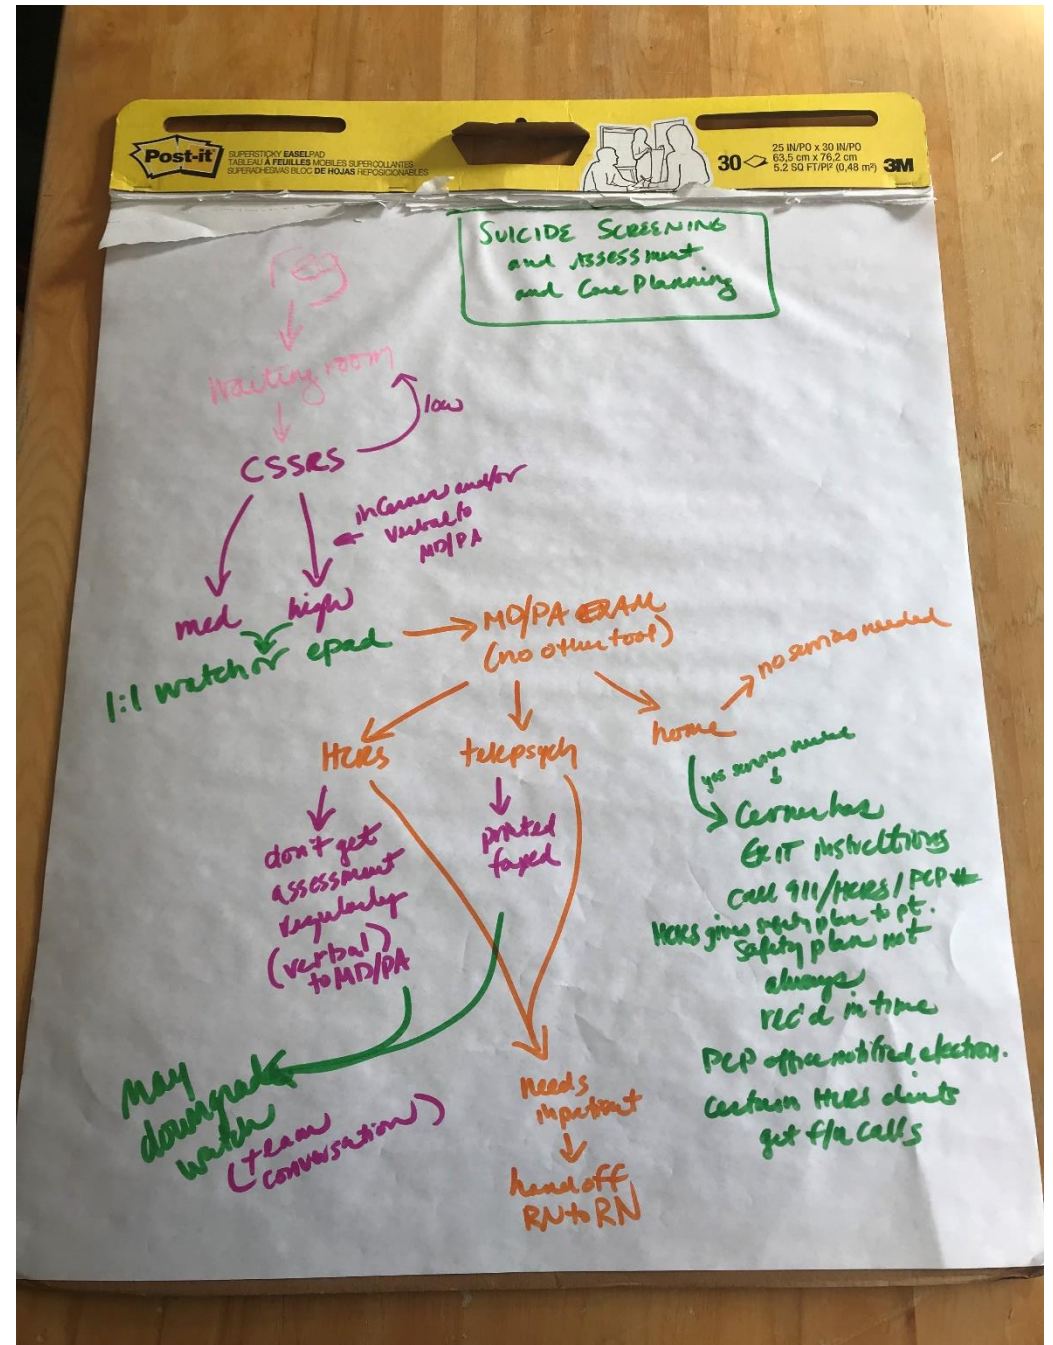 Post-it
SUPERSTICKY EASELPAD
TABLEAU À FEUILLES MOBILES SUPER COLLANTES
SUPERADHESIVAS BLOC DE HOJAS REPOSICIONABLES
30
25 IN/PO x 30 IN/PO
63,5 cm x 76,2 cm
5.2 SQ FT/PI² (0,48 m²)
3M
SUICIDE SCREENING
and Assessment
and Care Planning
reg
Waiting room
low
CSSRS
in Cerner and/or
verbal to
MD/PA
med
high
1:1 watch or epad
MD/PA EXAM
(no other tool)
no services needed
HCRS
telepsych
home
yes services
don't get
assessment
regularly
(verbal)
to MD/PA
printed
faxed
Cerner has
EXIT instructions
call 911/HCRS/PCP #
HCRS gives safety plan to pt.
safety plan not
always
rec'd in time
PCP office notified electron.
certain HCRS clients
get f/u calls
may
downgrade
watch
(team
conversation)
needs
inpatient
handoff
RN to RN